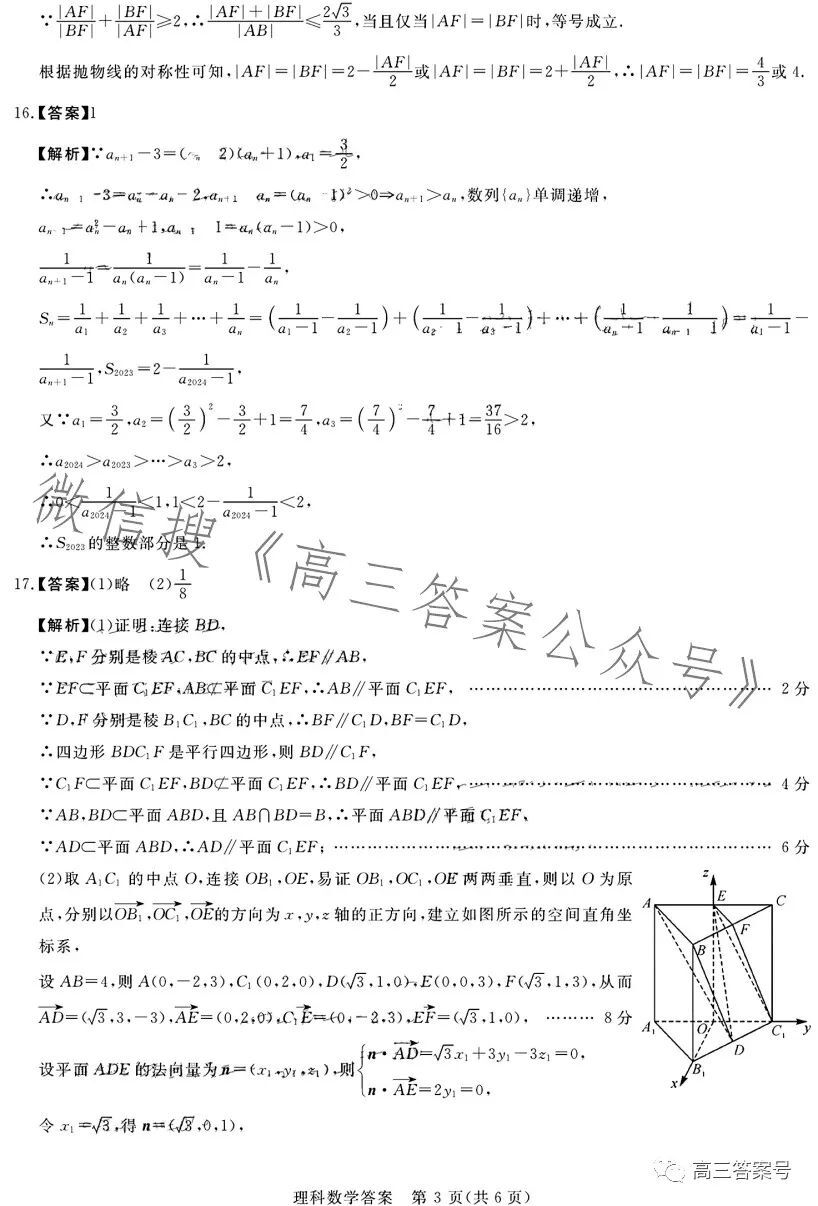 ∵|AF|/|BF|+|BF|/|AF|≥2,∴(|AF|+|BF|)/|AB|≤2√3/3,当且仅当|AF|=|BF|时,等号成立.
根据抛物线的对称性可知,|AF|=|BF|=2-|AF|/2或|AF|=|BF|=2+|AF|/2,∴|AF|=|BF|=4/3或4.
16.【答案】1
【解析】∵aₙ₊₁-3=( 2)(aₙ+1),a₁=3/2,
∴ -3=aₙ²-aₙ-2,aₙ₊₁ aₙ=(aₙ 1)²>0⇒aₙ₊₁>aₙ,数列{aₙ}单调递增,
=aₙ²-aₙ+1, 1=aₙ(aₙ-1)>0,
1/(aₙ₊₁-1)=1/(aₙ(aₙ-1))=1/(aₙ-1)-1/aₙ,
Sₙ=1/a₁+1/a₂+1/a₃+…+1/aₙ=(1/(a₁-1)-1/(a₂-1))+(1/(a₂-1)-1/(a₃-1))+…+(1/(aₙ-1)-1/(aₙ₊₁-1))=1/(a₁-1)-
1/(aₙ₊₁-1),S₂₀₂₃=2-1/(a₂₀₂₄-1),
又∵a₁=3/2,a₂=(3/2)²-3/2+1=7/4,a₃=(7/4)²-7/4+1=37/16>2,
∴a₂₀₂₄>a₂₀₂₃>…>a₃>2,
∴0<1/(a₂₀₂₄-1)<1,1<2-1/(a₂₀₂₄-1)<2,
∴S₂₀₂₃的整数部分是1.
17.【答案】(1)略 (2)1/8
【解析】(1)证明:连接BD,
∵E,F分别是棱AC,BC的中点,∴EF∥AB,
∵EF⊂平面C₁EF,AB⊄平面C₁EF,∴AB∥平面C₁EF, …… 2分
∵D,F分别是棱B₁C₁,BC的中点,∴BF∥C₁D,BF=C₁D,
∴四边形BDC₁F是平行四边形,则BD∥C₁F,
∵C₁F⊂平面C₁EF,BD⊄平面C₁EF,∴BD∥平面C₁EF, …… 4分
∵AB,BD⊂平面ABD,且AB∩BD=B,∴平面ABD∥平面C₁EF,
∵AD⊂平面ABD,∴AD∥平面C₁EF; …… 6分
(2)取A₁C₁的中点O,连接OB₁,OE,易证OB₁,OC₁,OE两两垂直,则以O为原
点,分别以OB₁→,OC₁→,OE→的方向为x,y,z轴的正方向,建立如图所示的空间直角坐
标系,
设AB=4,则A(0,-2,3),C₁(0,2,0),D(√3,1,0),E(0,0,3),F(√3,1,3),从而
AD→=(√3,3,-3),AE→=(0,2,0),C₁E→=(0,-2,3),EF→=(√3,1,0), ……… 8分
设平面ADE的法向量为n=(x₁,y₁,z₁),则{n·AD→=√3x₁+3y₁-3z₁=0,
n·AE→=2y₁=0,
令x₁=√3,得n=(√3,0,1),
z
A
E
C
F
B
A₁
O
C₁
y
D
B₁
x
微信搜《高三答案公众号》
高三答案号
理科数学答案 第3页(共6页)